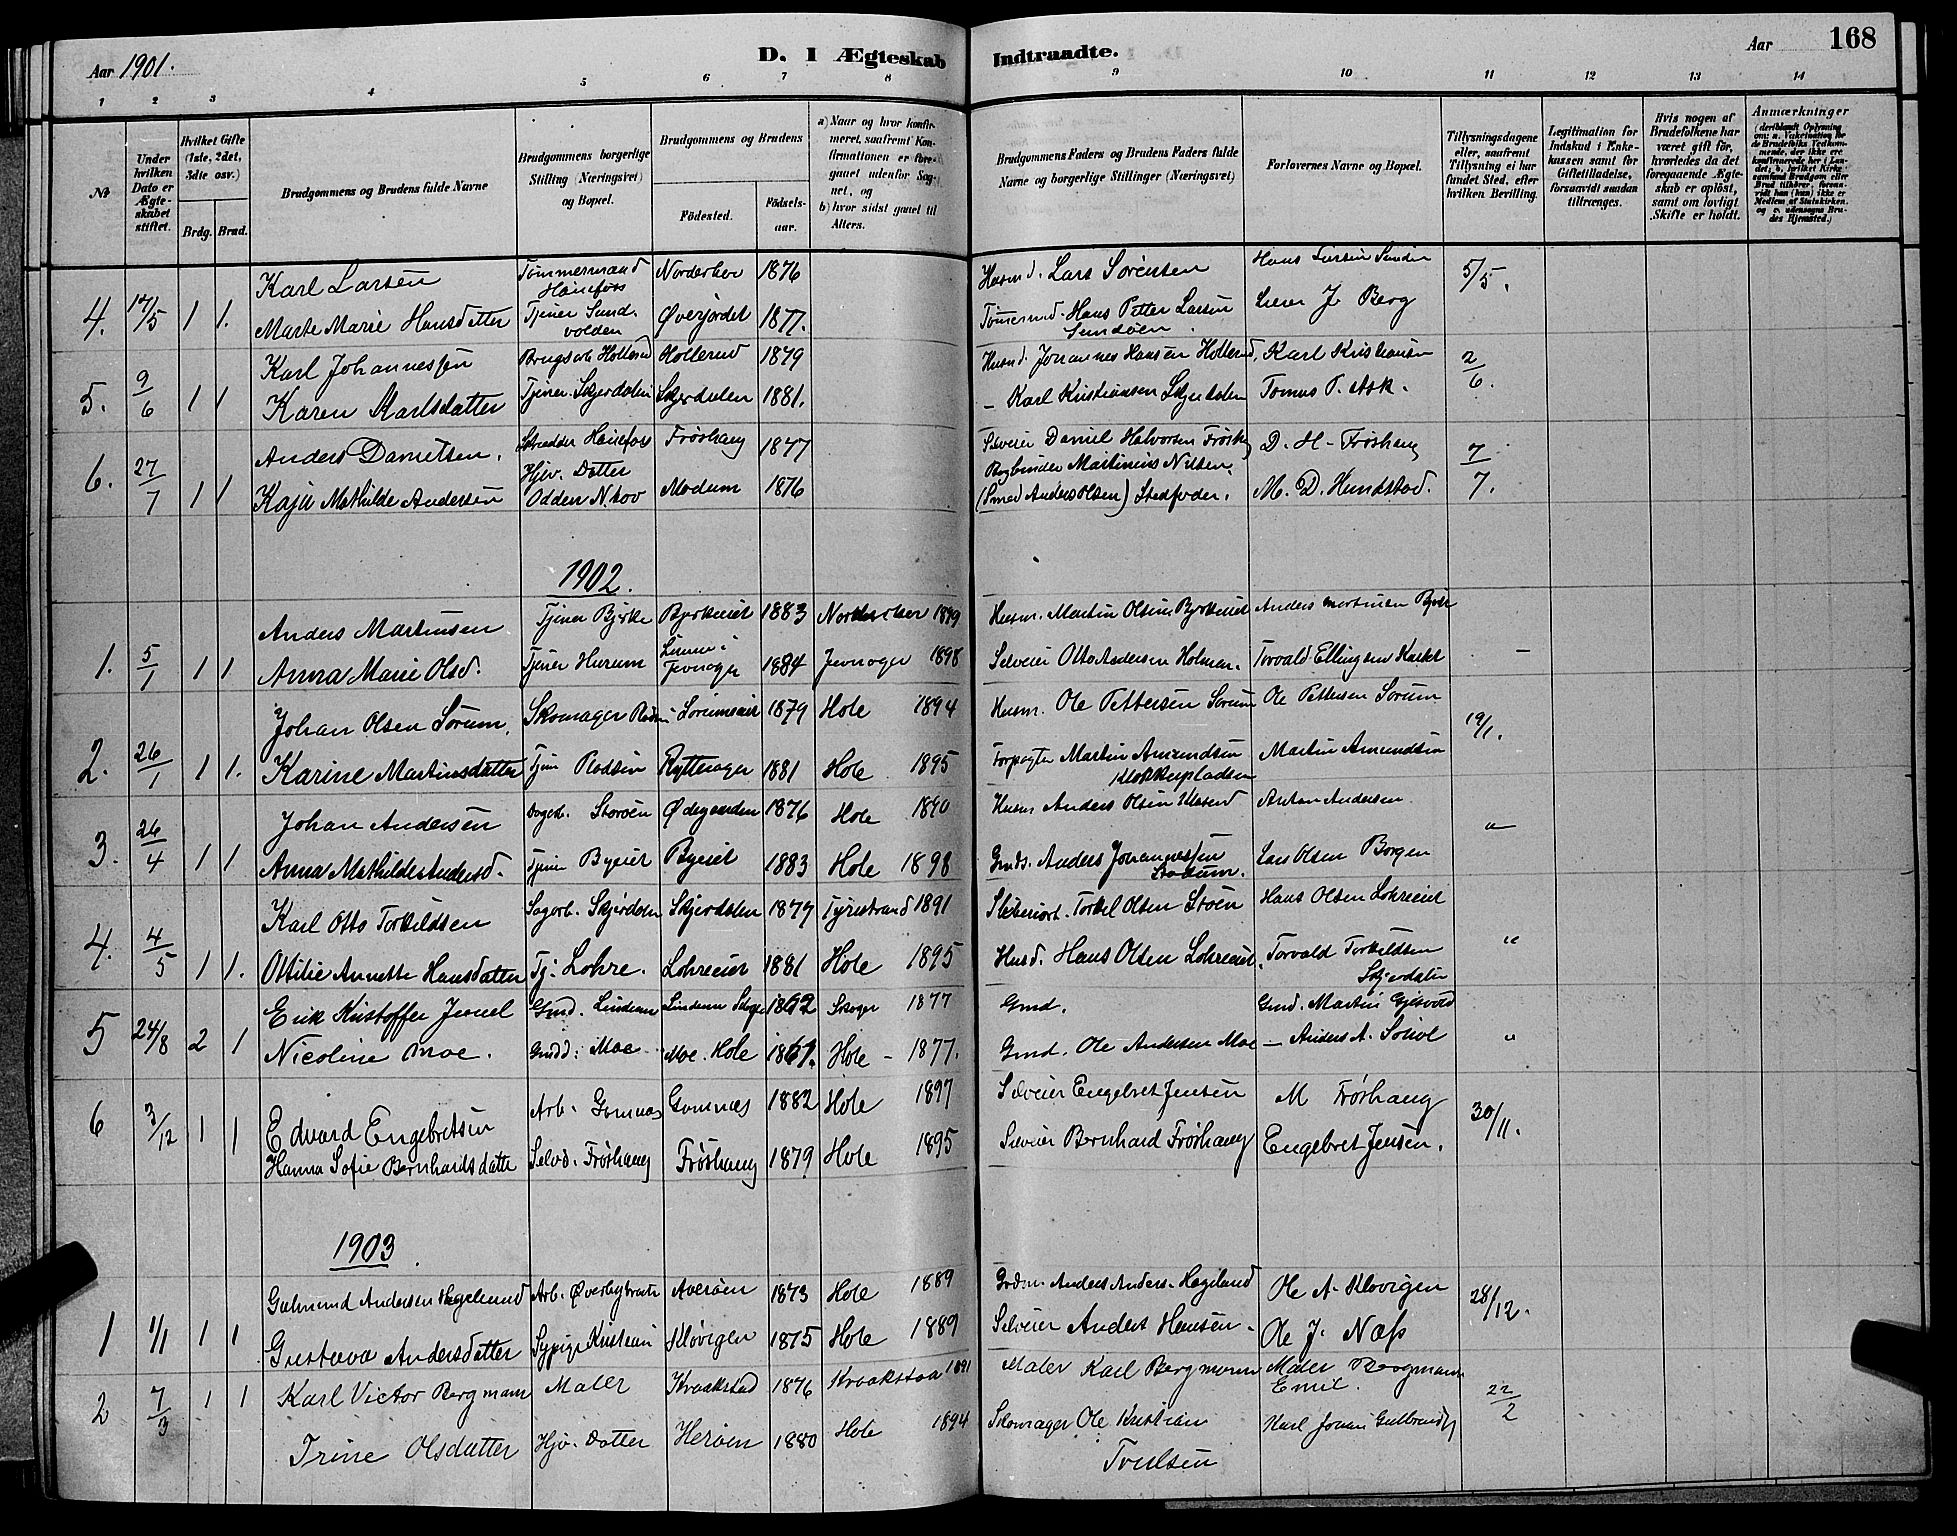 Aar 1901.
D. I Ægteskab Indtraadte.
Aar 168
1 2 3 4 5 6 7 8 9 10 11 12 13 14
No
Under hvilken Dato er Ægteskabet stiftet.
Hvilket Gifte (1ste, 2det, 3die osv.)
Brdg. Brud.
Brudgommens og Brudens fulde Navne
Brudgommens borgerlige Stilling (Næringsvei) og Bopæl.
Brudgommens og Brudens
Fødested. Fødselsaar.
a) Naar og hvor konfirmeret, saafremt Konfirmationen er foregaaet udenfor Sognet, og
b) hvor sidst gaaet til Alters.
Brudgommens Faders og Brudens Faders fulde Navne og borgerlige Stillinger (Næringsvei)
Forlovernes Navne og Bopæl.
Tillysningsdagene eller, saafremt Tillysning ei har fundet Sted, efter hvilken Bevilling.
Legitimation for Indskud i Enkekassen samt for Giftetilladelse, forsaavidt saadan tiltrænges.
Hvis nogen af Brudefolkene har været gift før, hvorledes da det foregaaende Ægteskab er opløst, samt om lovligt Skifte er holdt.
Anmærkninger
Karl Larsen Tømmermand Hønefoss Norderhov 1876 Husmd. Lars Sørensen 5/5.
4. 12/5 1 1. Marte Marie Hansdatter Tjener Sundvolden Øverjordet 1877. Tømmermd. Hans Petter Larsen Sundøen. J. Berg
Karl Johannessen Brugsarb Hollerud Hollerud 1879 Husmd. Johannes Hansen Hollerud, Karl Kristiansen 2/6.
5. 9/6 1 1 Karen Karlsdatter Tjener Skjerdalen Skjerdalen 1881. — Karl Kristiansen Skjerdalen Tomas T. Ask.
Anders Danielsen. Skredder Hønefoss Frøshaug 1847 Selveier Daniel Halvorsen Frøshaug D. H. Frøshaug 7/7.
Hjv. Datter Bogbinder Martinius Nilsen.
6. 27/7 1 1 Kaja Mathilde Andersen Odden N.hov Modum 1876 (Smed Anders Olsen) Stedfader. M. D. Hundstad.
1902.
Anders Martinsen Tjener Bjørke Bjørkeeiet 1883 Norderhov 1899 Husm. Martin Olsen Bjørkeeiet Anders Martinsen
1. 5/1 1 1 Anna Marie Olsd. Tjener Hurum Jevnager 1884 Jevnager 1898 Selveier Otto Andersen Holmen. Torvald Ellingsen —
Johan Olsen Sørum. Skomager Sørumseiet 1879 Hole 1894 Husm. Ole Pettersen Sørum Ole Pettersen Sørum 19/1.
2. 26/1 1 1. Karine Martinsdatter Tjen Rytterager 1881 Hole 1895 Forpagter Martin Amundsen Klokkerpladsen Martin Amundsen
Johan Andersen Storøen Ødegaarden 1876 Hole 1890 Husm Anders Olsen Anton Andersen "
3. 26/4 1 1 Anna Mathilde Andersd. Tjener Byeiet Byeiet 1883 Hole 1898 Gmds. Anders Johannessen Lars Olsen Borgen
Karl Otto Torkildsen Sagarb. Skjerdalen Skjerdalen 1877 Tyristrand 1891 Torkel Olsen Støen Hans Olsen Lohreeiet "
4. 4/5 1 1. Ottilie Annette Hansdatter Tj. Lohre. Lohreeiet 1881 Hole 1895 Husd. Hans Olsen Lohreeiet Torvald Torkildsen Skjerdalen
Erik Kristoffer Juvel Gmd. Lindum Lindum Skoger 1862 Skoger 1877 Gmd. Gmd. Martin
5 24/8 2 1 Nicoline Moe. Gmdd: Moe Moe. Hole 1861. Hole — 1877. Gmd. Ole Andersen Moe — Anders A. "
Edvard Engebretsen Arb. Gomnæs Gomnæs 1882 Hole 1897 Selveier Engebret Jensen M Frøshaug 30/11.
6 3/12 1 1 Hanna Sofie Bernhardsdatter Selvd. Frøshaug Frøshaug 1879 Hole 1895 Selveier Bernhard Frøshaug Engebret Jensen.
1903
Gulmund Andersen Hegelund Arb. Averøen 1873 Hole 1889 Anders Anders. Hegelund Ole A. Kløvigen 28/12.
1 1/1 1 1 Gustava Andersdatter Sypige Kløvigen 1875 Hole 1889 Selveier Anders Hansen. Ole J. Næss
Karl Victor Bergmann Maler Kraakstad 1876 Kraakstad 1891 Maler Karl Bergmann Maler Bergmann Emil. 22/2
2 7/3 1 1 Trine Olsdatter Hjv. Datter Herøen 1880 Hole 1894 Skomager Ole Kristian Trulsen Karl Johan